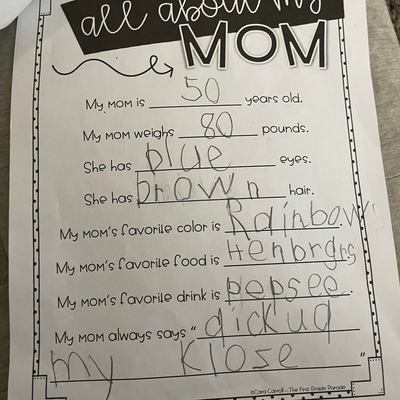 all about my
MOM
My MOM is 50 years old.
My MOM weighs 80 pounds.
She has blue eyes.
She has brown hair.
My MOM's favorite color is Rainbow
My MOM's favorite food is Henbrghs.
My MOM's favorite drink is pepsee.
My MOM always says "dickup
my Klose"
©Cara Carroll - The First Grade Parade